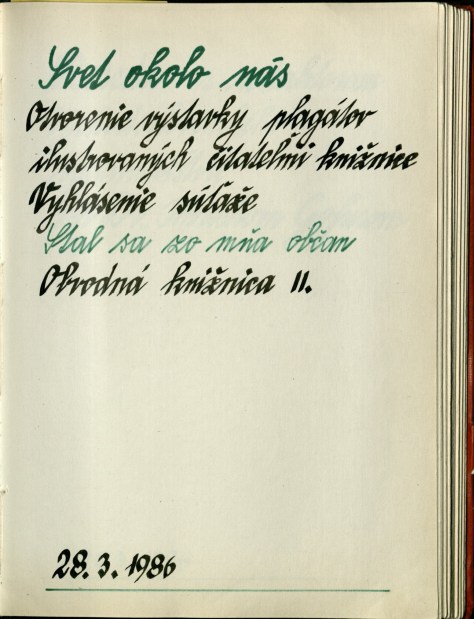 Svet okolo nás
Otvorenie výstavky plagátov
ilustrovaných čitateľmi knižnice
Vyhlásenie súťaže
Stal sa zo mňa občan
Obvodná knižnica II.
28. 3. 1986